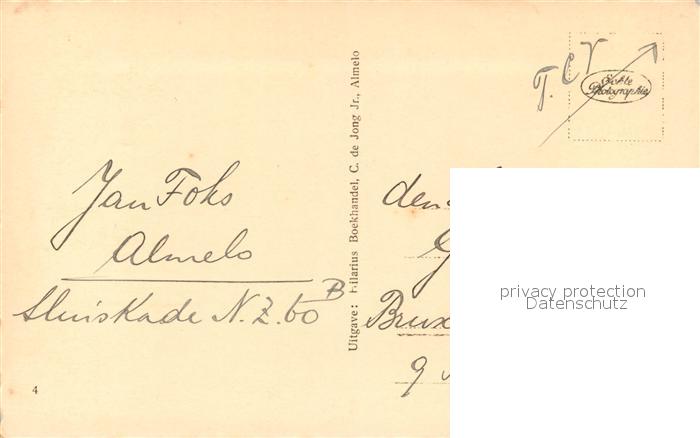 T.C.V
Echte
Photographie
Jan Foks
Almelo
Sluiskade N.Z. 60 B
4
Uitgave: Hilarius Boekhandel, C. de Jong Jr., Almelo
den
G
Brux
9
privacy protection
Datenschutz